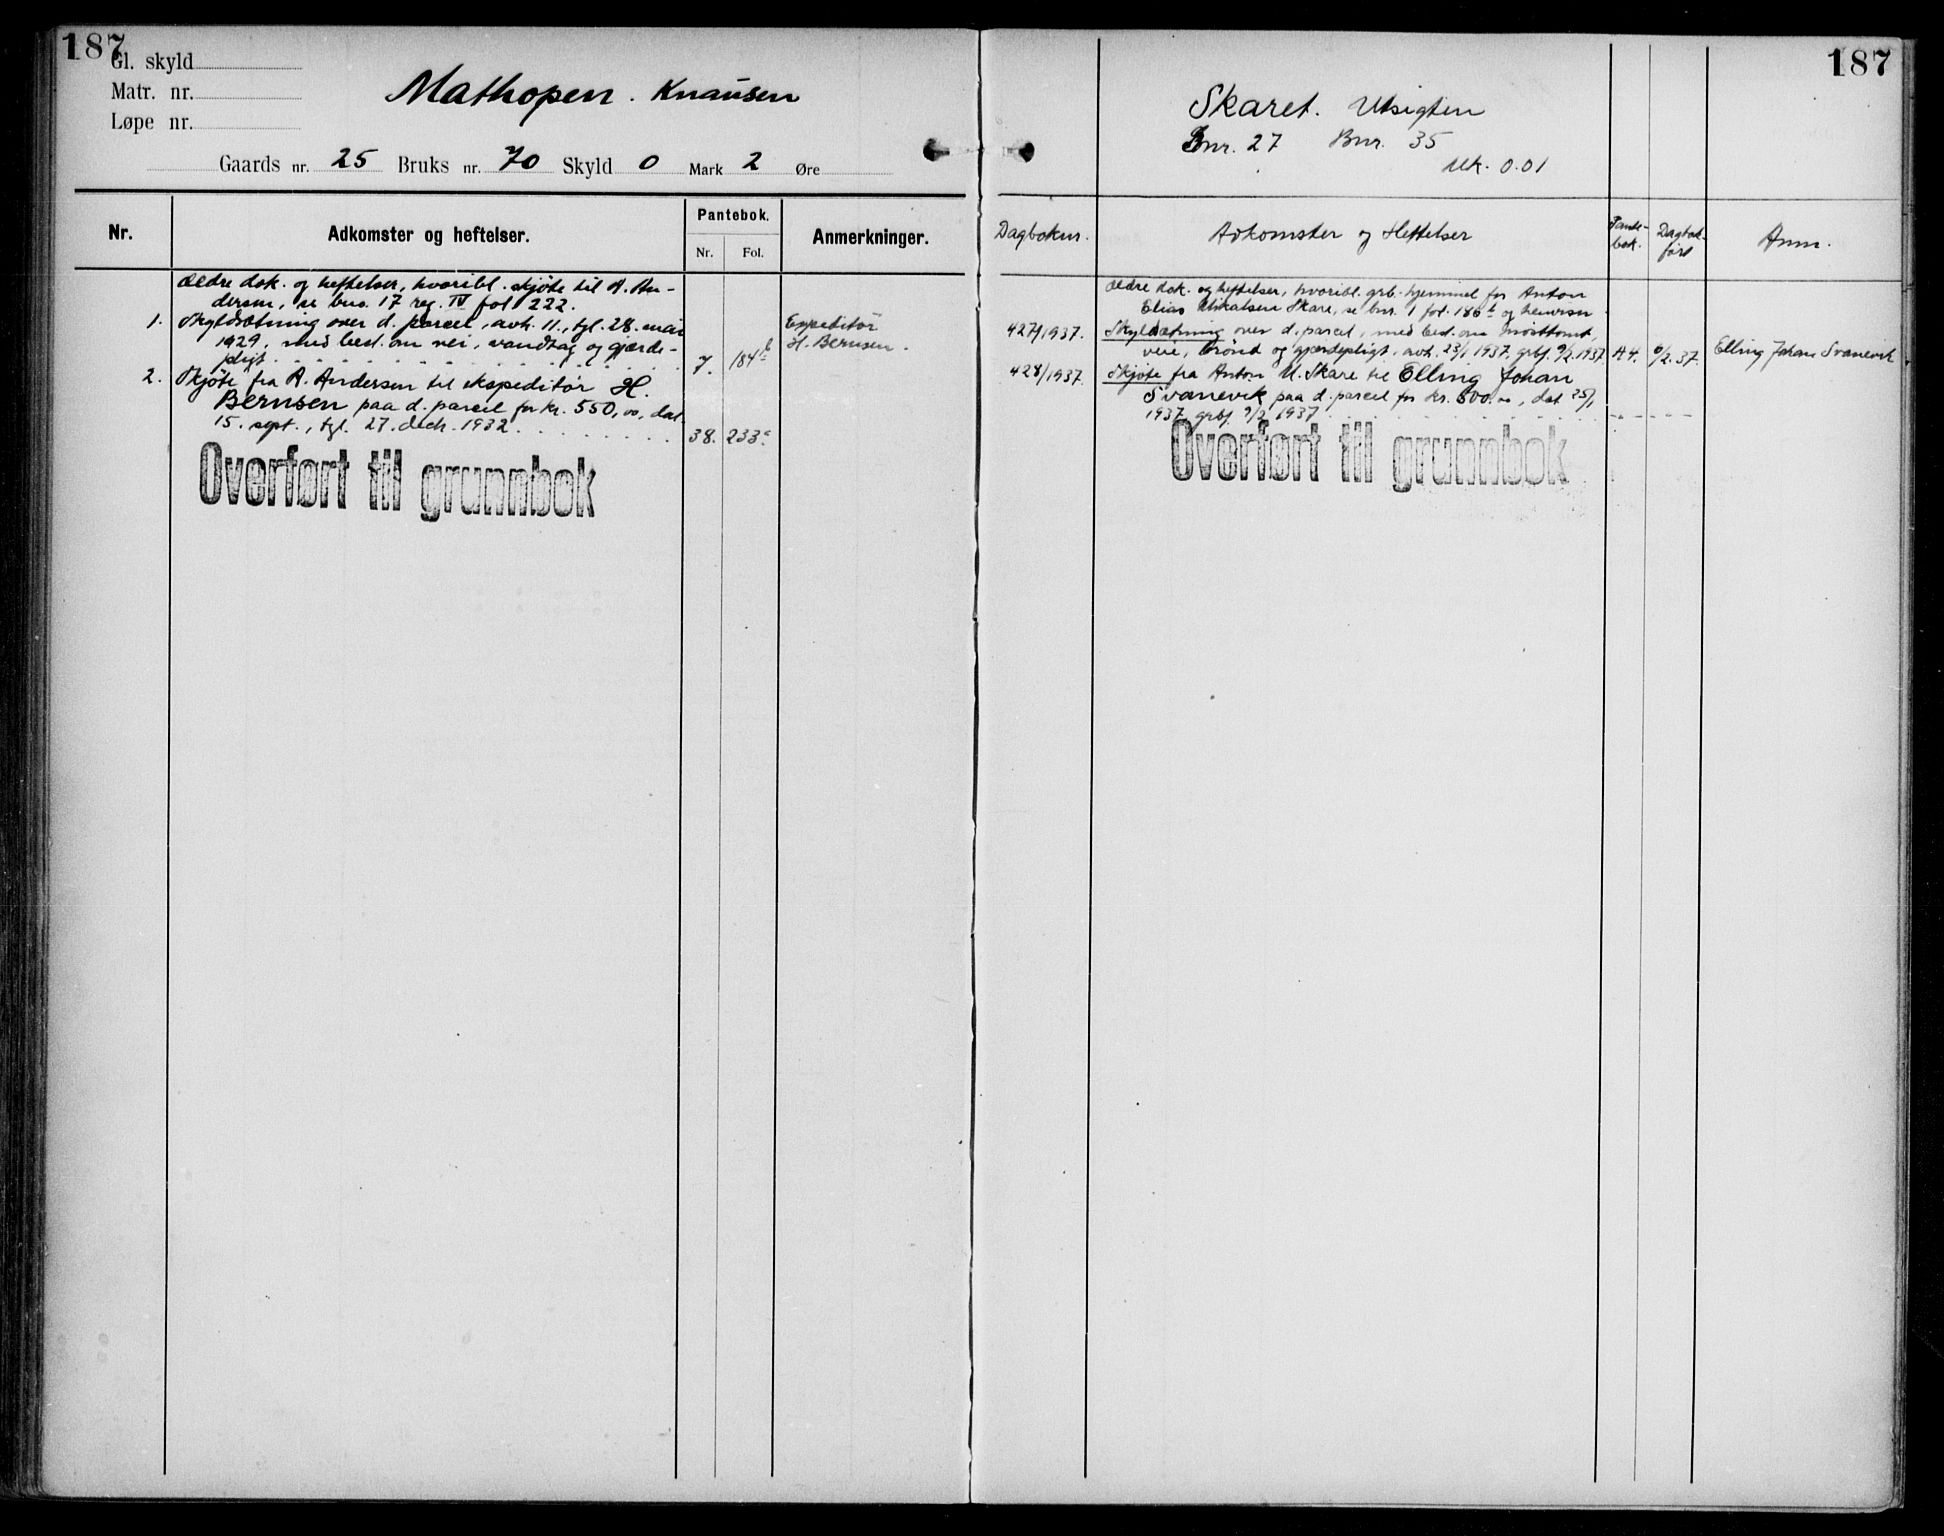 187
Gl. skyld
Matr. nr.
Løpe nr.
Mathopen. Knausen
Gaards nr. 25 Bruks nr. 70 Skyld 0 Mark 2 Øre
Nr.
Adkomster og heftelser.
Pantebok.
Nr. Fol.
Anmerkninger.
Ældre dok. og heftelser, hvoribl. skjøte til A. An-
dersen, se bno. 17 reg. IV fol 222.
1. Skyldsætning over d. parcel, avh. 11., tgl. 28. mai
1929, med best. om vei, vandtag og gjærde-
pligt 7. 184b
Expeditør
H. Bernsen.
2. Skjøte fra A. Andersen til ekspeditør H.
Bernsen paa d. parcel for kr. 550,00, dat.
15. sept., tgl. 27. decb. 1932. 38. 233a
Overført til grunnbok
187
Skaret. Utsigten
Bnr. 27 Bnr. 35
Mk. 0.01
Dagboknr.
Adkomster og Heftelser
Pante-
bok.
Dagbok-
ført
Anm.
Ældre dok. og heftelser, hvoribl. grb. hjemmel for Anton
Elias Mikalsen Skare, se bnr. 1 fol. 186b og
427/1937. Skyldsætning over d. parcel, med best. om nøsttomt,
veie, brønd og gjærdepligt, avh. 23/1 1937. grbf. 9/2 1937 A4. 6/2.37. Elling Johan Svanevik
428/1937. Skjøte fra Anton M. Skare til Elling Johan
Svanevik paa d. parcel for kr. 500.00, dat 25/1
1937 grbf. 9/2 1937
Overført til grunnbok